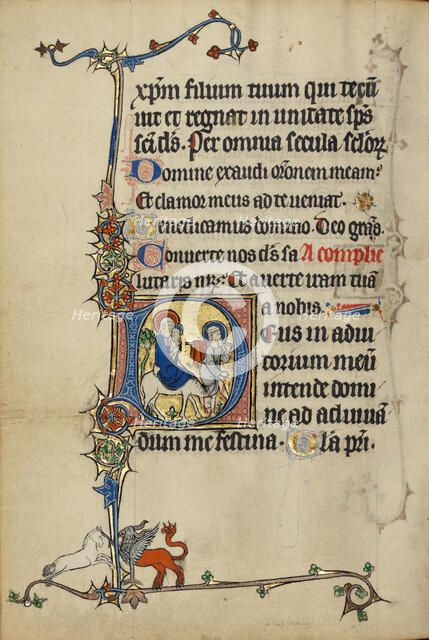 xp̄m filium tuum qui tecū
uit et regnat in unitate sp̄s
sc̄i ds̄. Per omnia secula sclorꝝ
Domine exaudi or̄onem meam
Et clamor meus ad te ueniat.
Benedicamus domino. Deo grās
Conuerte nos ds̄ sa A complie
lutaris nr̄: Et auerte iram tuā
a nobis.
Deus in adiu
torium meū
intende domi
ne ad adiuuan
dum me festina. Gl̄a pr̄i.
Heritage
Heritage
Heritage
Heritage